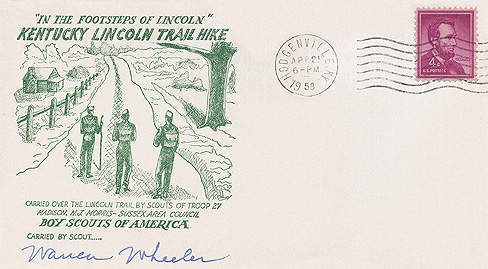 "IN THE FOOTSTEPS OF LINCOLN"
KENTUCKY LINCOLN TRAIL HIKE
CARRIED OVER THE LINCOLN TRAIL BY SCOUTS OF TROOP 27
MADISON, N.J. MORRIS-SUSSEX AREA COUNCIL
BOY SCOUTS OF AMERICA
CARRIED BY SCOUT.....
Warren Wheeler
HODGENVILLE, KY.
APR 21
6-PM
1958
4¢
U.S. POSTAGE